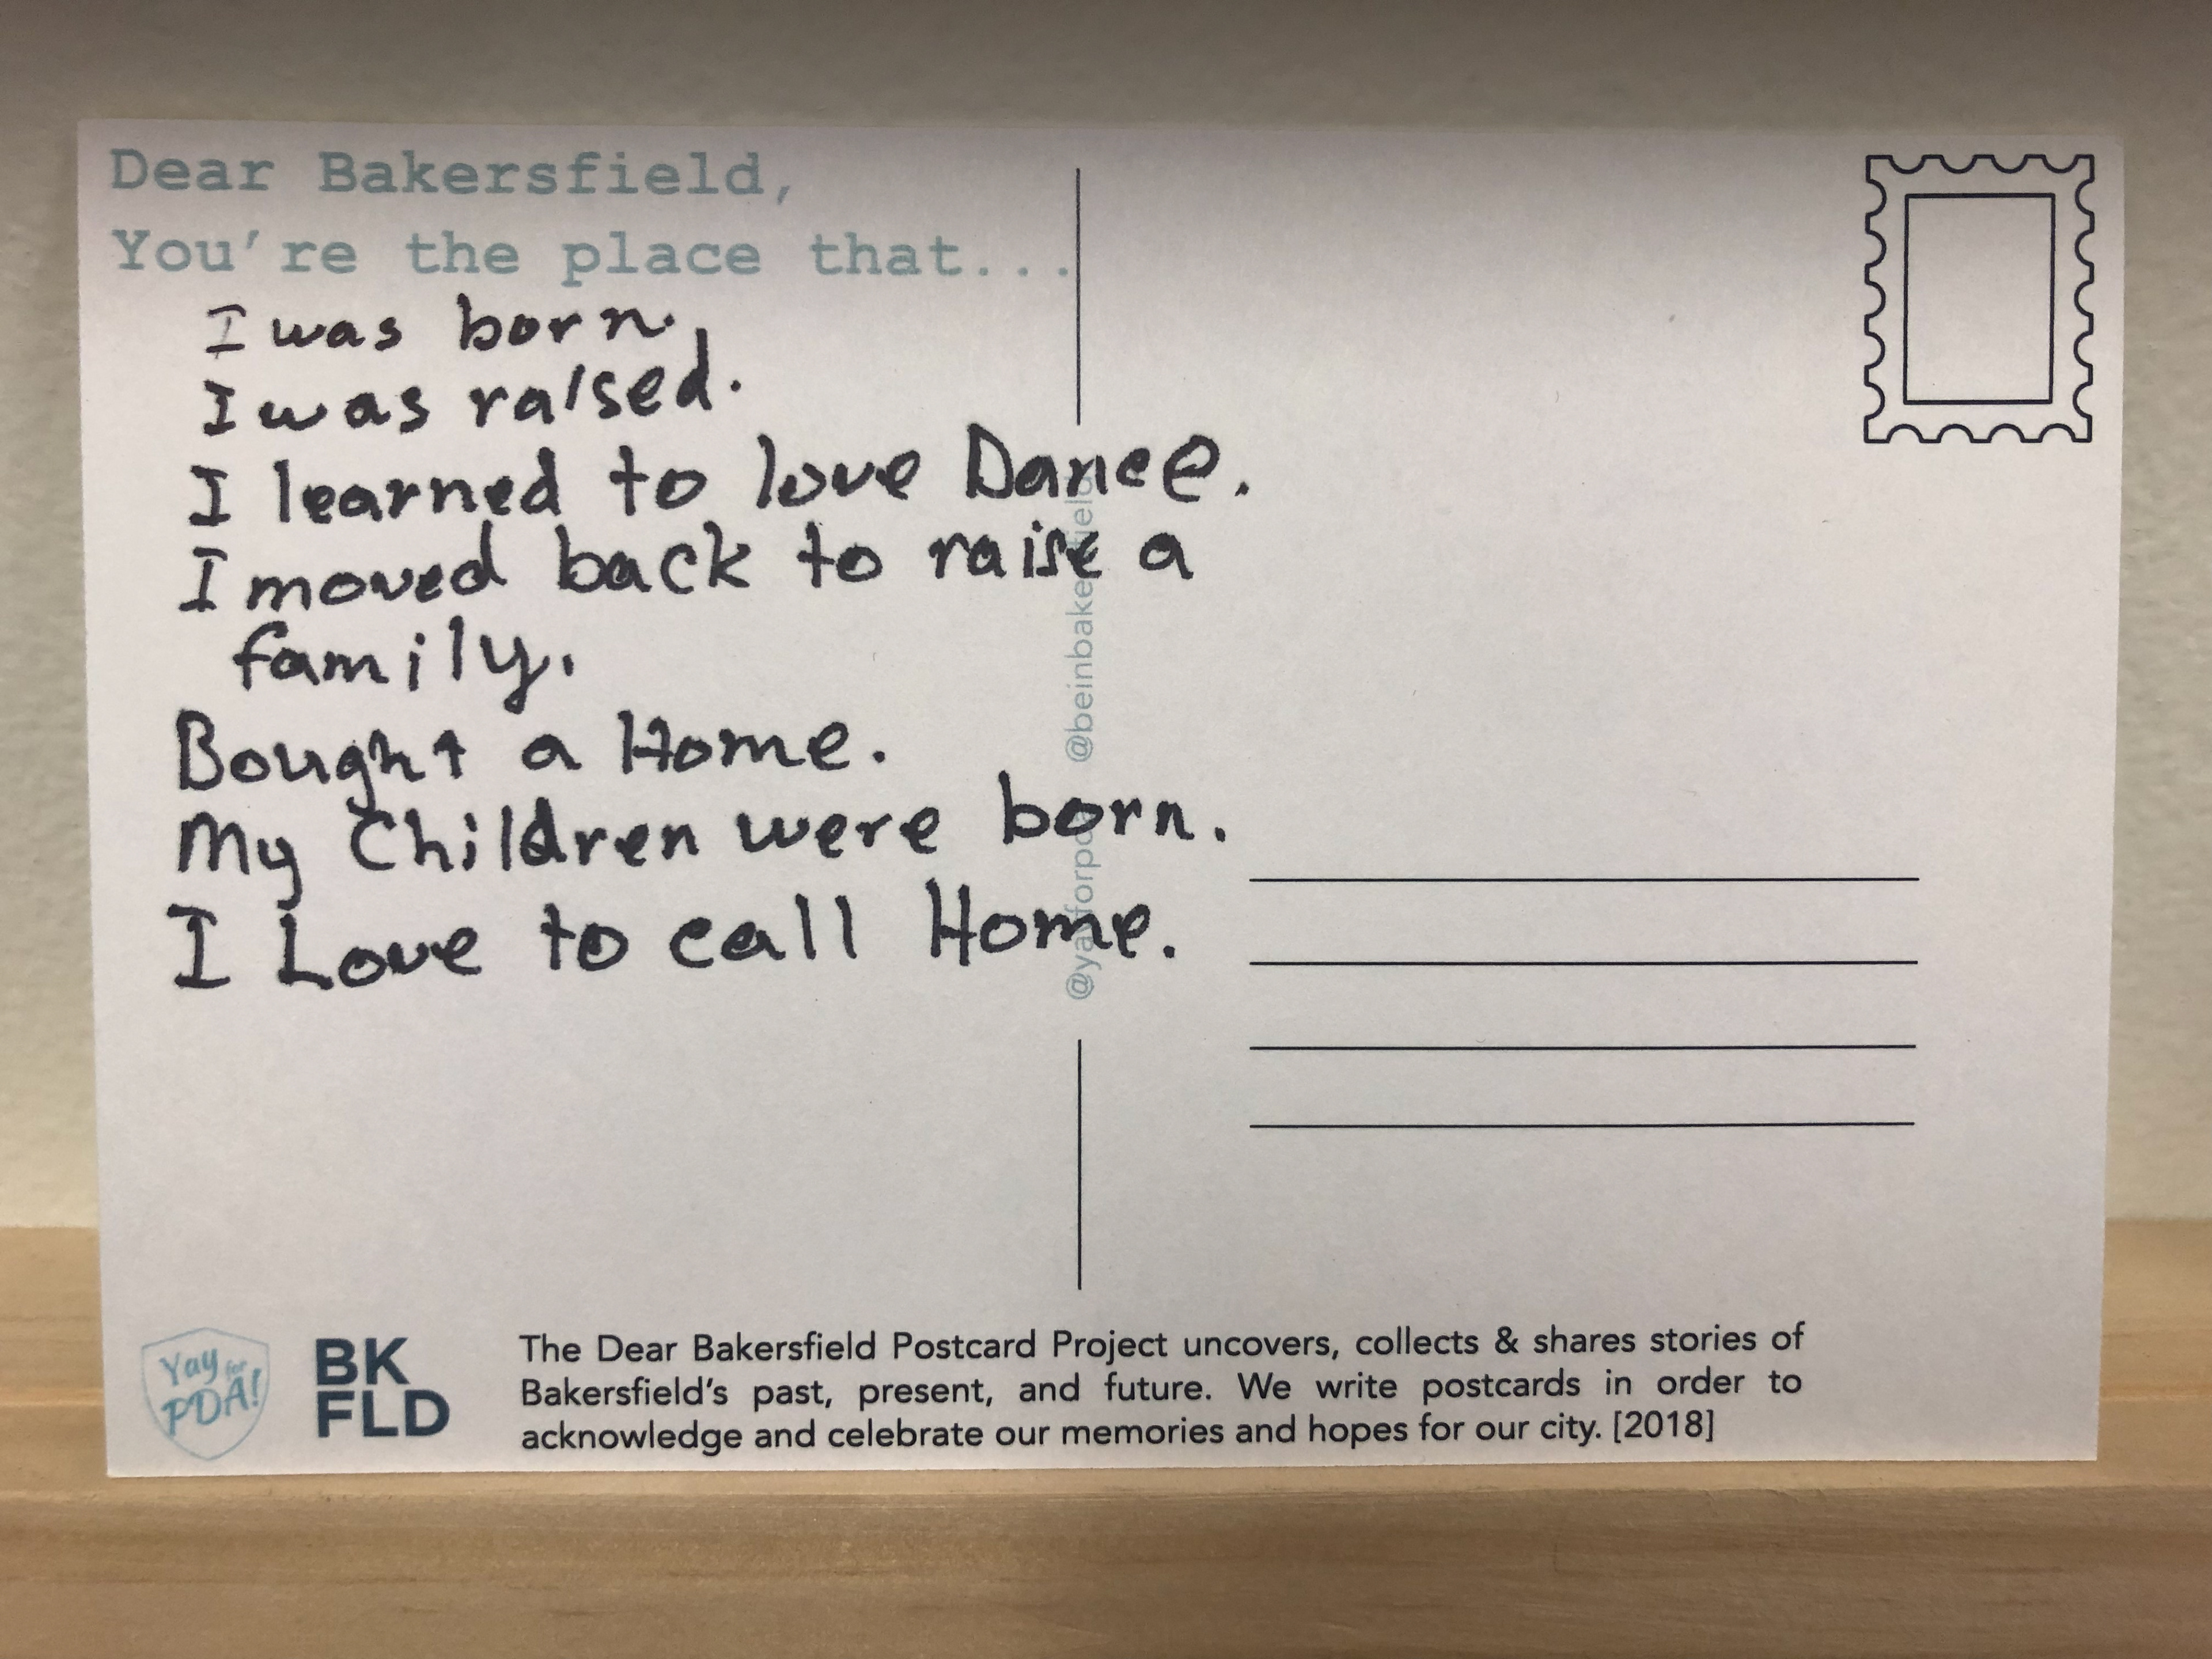 Dear Bakersfield,
You're the place that...
I was born.
I was raised.
I learned to love Dance.
I moved back to raise a
family.
Bought a Home.
My Children were born.
I Love to call Home.
@yayforpda @beinbakersfield
Yay for
PDA!
BK
FLD
The Dear Bakersfield Postcard Project uncovers, collects & shares stories of
Bakersfield's past, present, and future. We write postcards in order to
acknowledge and celebrate our memories and hopes for our city. [2018]